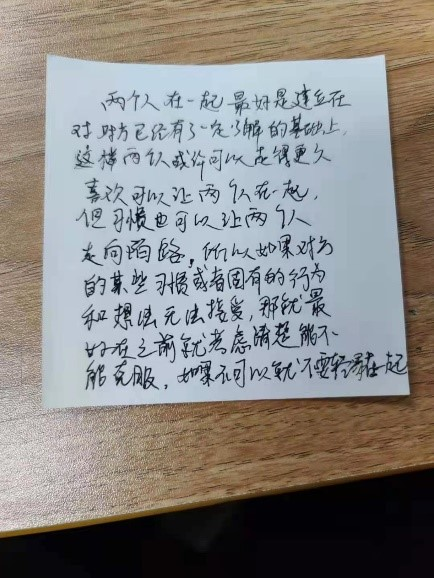 两个人在一起最好是建立在
对对方已经有了一定了解的基础上,
这样两个人或许可以走得更久
喜欢可以让两个人在一起,
但习惯也可以让两个人
走向陌路,所以如果对方
的某些习惯或者固有的行为
和想法无法接受,那就最
好在之前就考虑清楚能不
能克服,如果不可以就不要轻易在一起